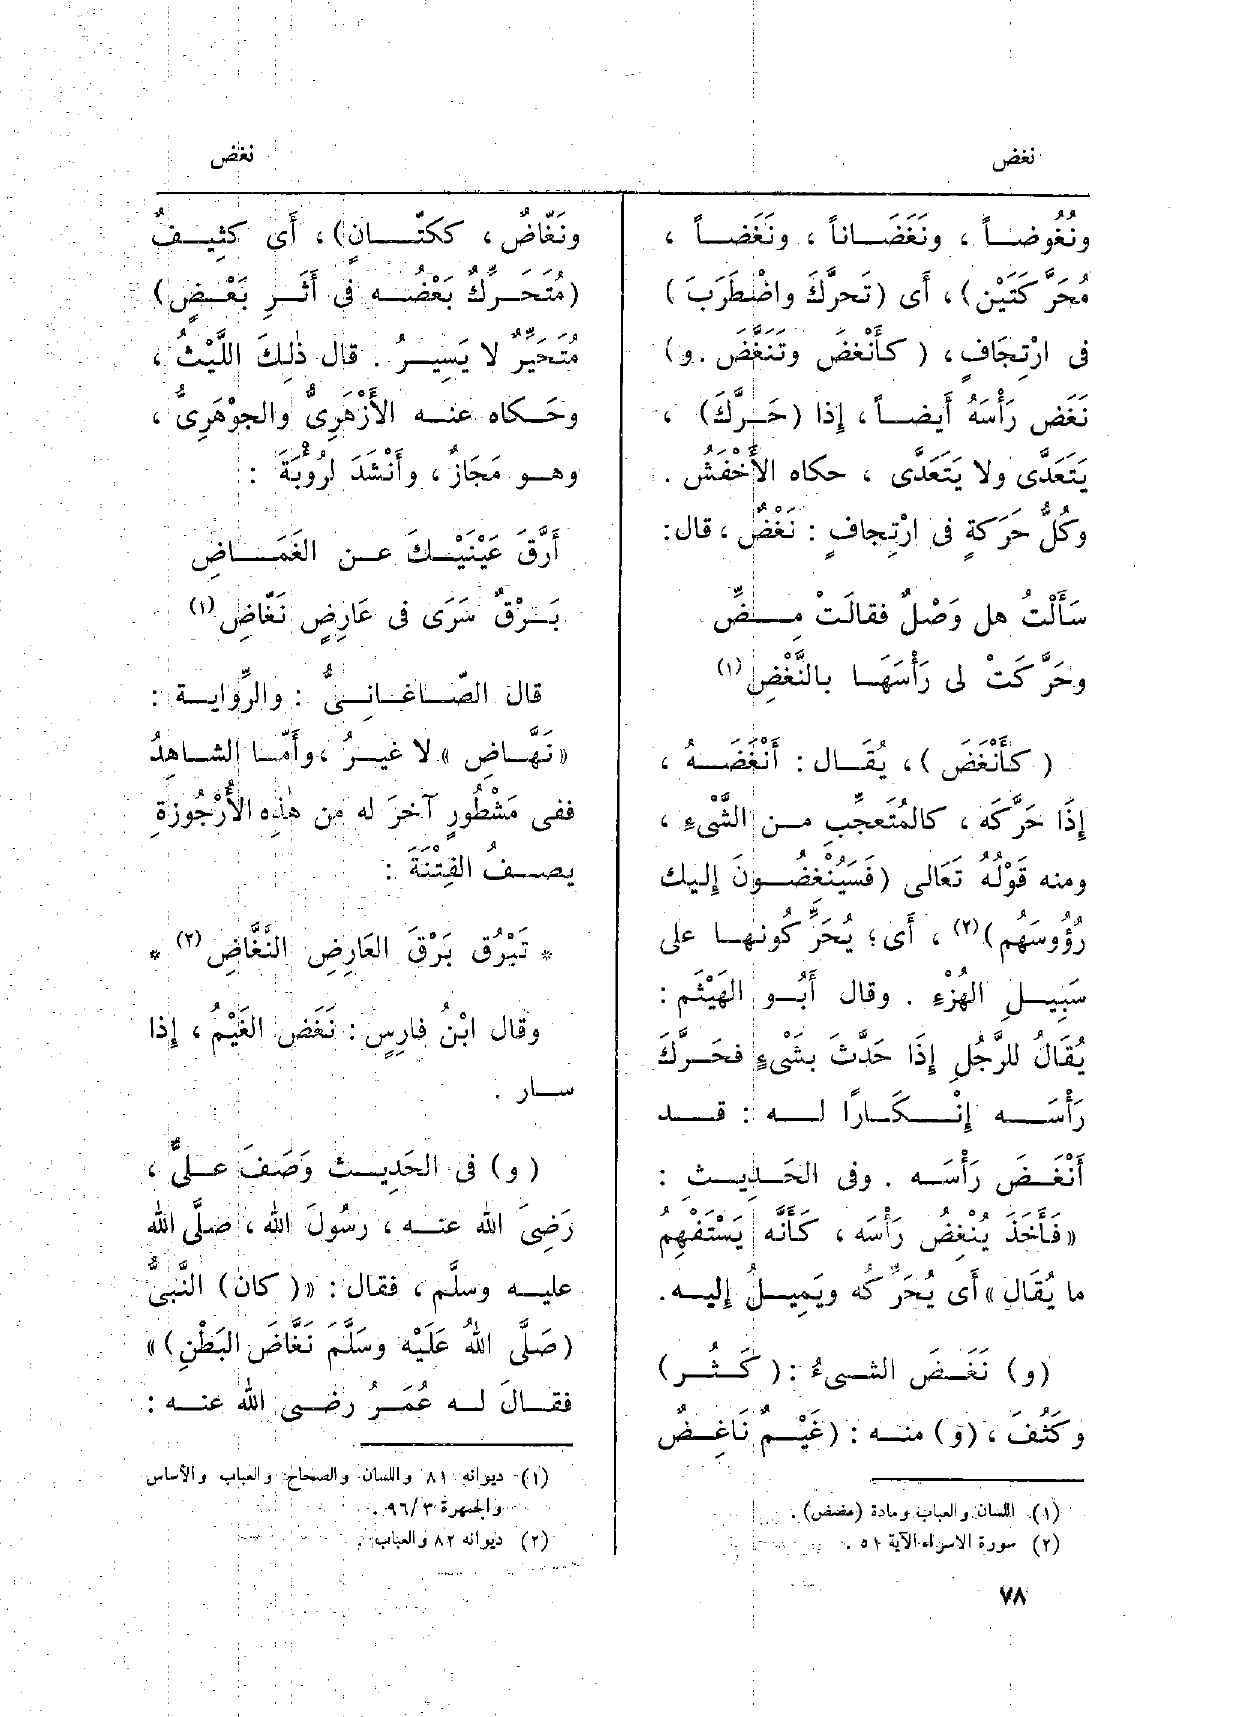 نغض
ونُغُوضاً ، ونَغَضَاناً ، ونَغَضاً ،
مُحَرَّكَتَيْن) ، أى (تَحرَّكَ واضْطَرَبَ)
فى ارْتِجَافٍ ، (كأَنْغَض وتَنَغَّضَ . و)
نَغَض رَأْسَهُ أَيضاً ، إذا (حَرَّكَ) ،
يَتَعَدَّى ولا يَتَعَدَّى ، حكاه الأَخْفَشُ .
وكُلُّ حَرَكةٍ فى ارْتِجافٍ : نَغْضٌ ، قال :
سَأَلْتُ هل وَصْلٌ فقالَتْ مِضٌّ
وحَرَّكَتْ لى رَأْسَهَا بالنَّغْضِ (١)
(كأَنْغَضَ) ، يُقَال : أَنْغَضَهُ ،
إذَا حَرَّكَه ، كالمُتَعجِّبِ من الشَّىْءِ ،
ومنه قَوْلُهُ تَعَالى (فَسَيُنْغِضُونَ إليك
رُؤُوسَهُم) (٢) ، أى ؛ يُحَرِّكُونها على
سَبِيلِ الهُزْءِ . وقال أَبُو الهَيْثَم :
يُقَالُ للرَّجُلِ إذَا حَدَّثَ بشَىْءٍ فحَرَّكَ
رَأْسَه إِنْكَارًا له : قد
أَنْغَضَ رَأْسَه . وفى الحَدِيثِ :
« فأَخَذَ يُنْغِضُ رَأْسَه ، كَأَنَّه يَسْتَفْهِمُ
ما يُقَال » أَى يُحَرِّكُه ويَمِيلُ إليه.
(و) نَغَضَ الشىءُ : (كَثُرَ)
وكَثُفَ ، (و) منه : (غَيْمٌ نَاغِضٌ
(١) اللسان والعباب ومادة (مضض) .
(٢) سورة الاسراء الآية ٥١ .
٧٨
نغض
ونَغَّاضٌ ، ككَتّانٍ) ، أَى كثِيفٌ
(مُتَحَرِّكٌ بَعْضُه فى أَثَرِ بَعْضٍ)
مُتَحَيِّرٌ لا يَسِيرُ . قال ذلِكَ اللَّيْثُ ،
وحَكاه عنه الأَزْهَرِىُّ والجوْهَرِىُّ ،
وهو مَجَازٌ ، وأَنْشَدَ لرُؤْبَةَ :
أَرَّقَ عَيْنَيْكَ عن الغَمَاضِ
بَرْقٌ سَرَى فى عَارِضٍ نَغّاضِ (١)
قال الصّاغانِىُّ : والرِّواية :
« نَهَّاض » لا غيرُ ، وأَمّا الشاهِدُ
ففى مَشْطُورٍ آخرَ له من هٰذِه الأُرْجُوزةِ
يصفُ الفِتْنَةَ :
* تَبْرُق بَرْقَ العَارِضِ النَّغَّاضِ (٢) *
وقال ابْنُ فارِسٍ : نَغَضَ الغَيْمُ ، إذا
سار .
(و) فى الحَدِيث وَصَفَ علىٌّ ،
رَضِىَ الله عنه ، رسُولَ الله ، صلَّى الله
عليه وسلَّم ، فقال : «(كان) النَّبىُّ
(صَلَّى اللهُ عَلَيْه وسَلَّمَ نَغَّاضَ البَطْنِ)»
فقالَ له عُمَرُ رضى الله عنه :
(١) ديوانه ٨١ واللسان والصحاح والعباب والأساس
والجمهرة ٩٦/٣ .
(٢) ديوانه ٨٢ والعباب